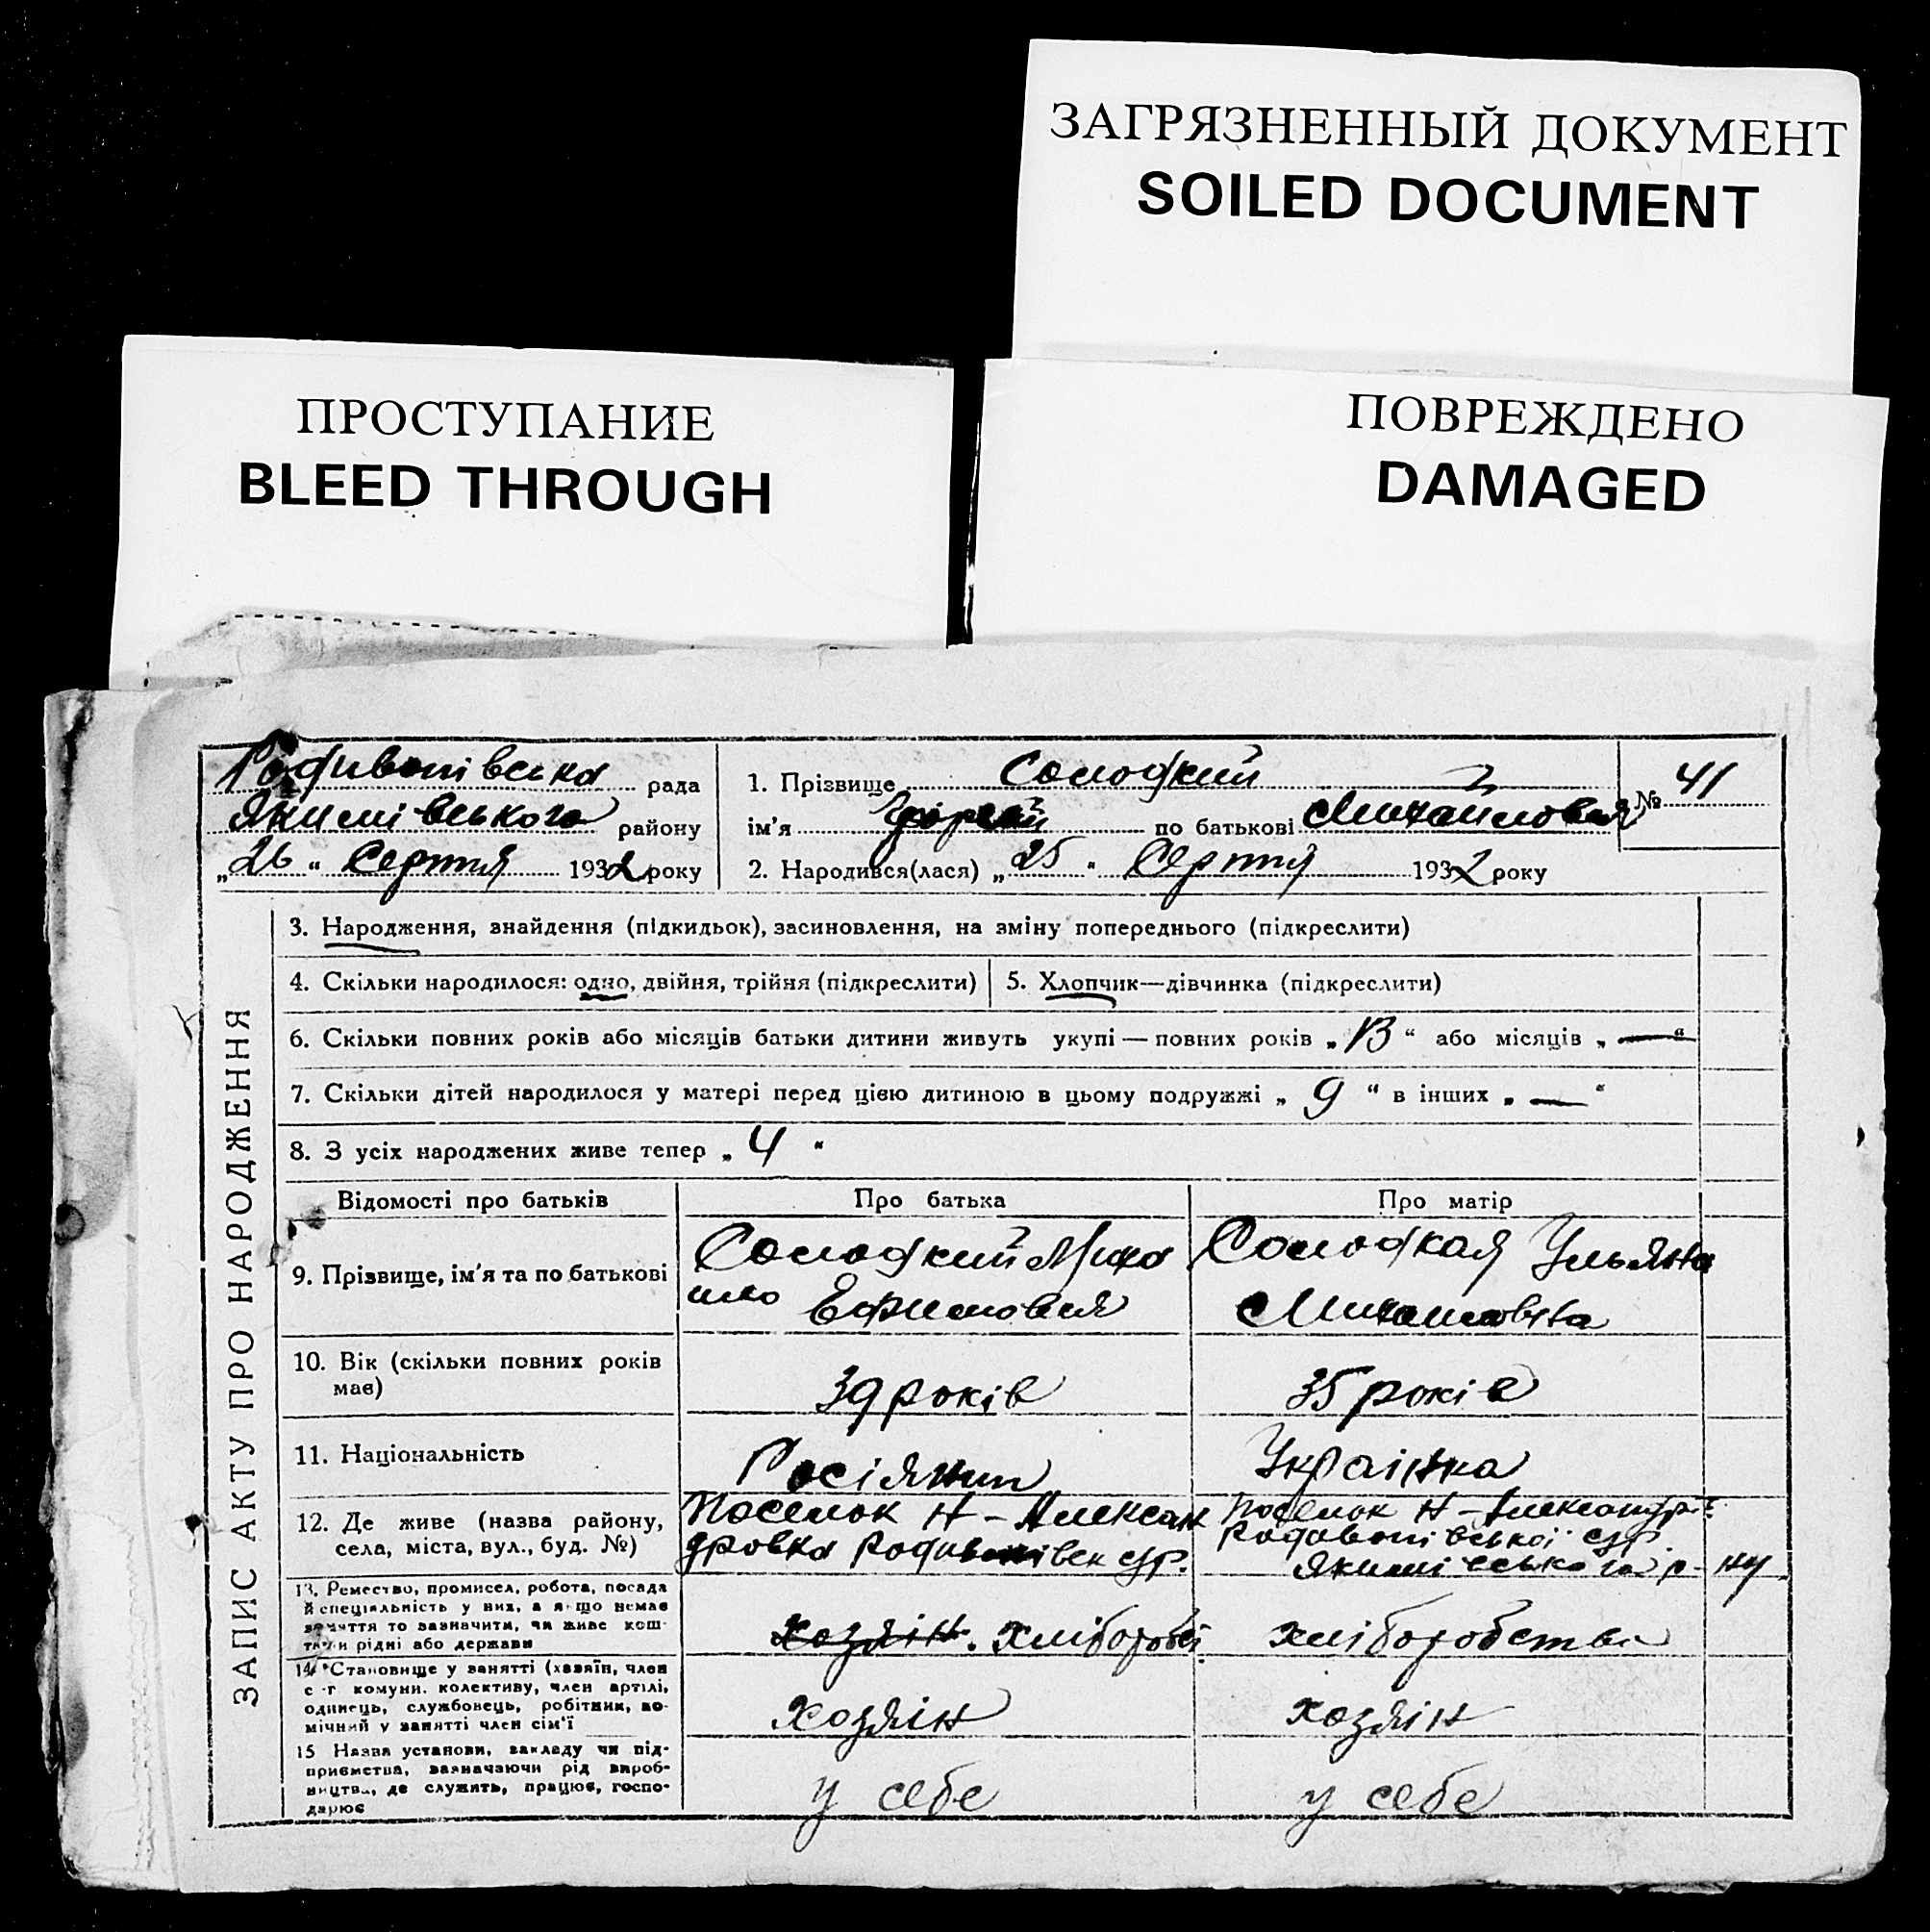 ЗАГРЯЗНЕННЫЙ ДОКУМЕНТ
SOILED DOCUMENT
ПРОСТУПАНИЕ
BLEED THROUGH
ПОВРЕЖДЕНО
DAMAGED
Родивонівська рада
Якимівського району
„26“ Серпня 1932 року
1. Прізвище Солодкий
ім’я по батькові Михайлович
№ 41
2. Народився(лася) „25“ Серпня 1932 року
ЗАПИС АКТУ ПРО НАРОДЖЕННЯ
3. Народження, знайдення (підкидьок), засиновлення, на зміну попереднього (підкреслити)
4. Скільки народилося: одно, двійня, трійня (підкреслити)
5. Хлопчик—дівчинка (підкреслити)
6. Скільки повних років або місяців батьки дитини живуть укупі — повних років „13“ або місяців „—“
7. Скільки дітей народилося у матері перед цією дитиною в цьому подружжі „9“ в інших „—“
8. З усіх народжених живе тепер „4“
Відомості про батьків
Про батька
Про матір
9. Прізвище, ім’я та по батькові
Солодкий Миха
ило Ефимович
Солодкая Ульяна
Михайловна
10. Вік (скільки повних років
має)
39 років
35 років
11. Національність
Росіянин
Українка
12. Де живе (назва району,
села, міста, вул., буд. №)
Поселок Н-Алексан
дровка Родивонівск с/р.
Поселок Н-Александр.
Родивонівської с/р.
Якимівського р-ну
13. Ремество, промисел, робота, посада
й спеціяльність у них, а якщо немає
заняття то зазначити, чи живе кош-
тами рідні або держави
хозяін. хліборобс.
хліборобство
14. Становище у занятті (хазяїн, член
с-г комуни, колективу, член артілі,
одинець, службовець, робітник, по-
мічний у занятті член сім’ї
хозяін
хозяін
15 Назва установи, закладу чи під-
приємства, зазначаючи рід вироб-
ництва, де служить, працює, госпо-
дарює
у себе
у себе